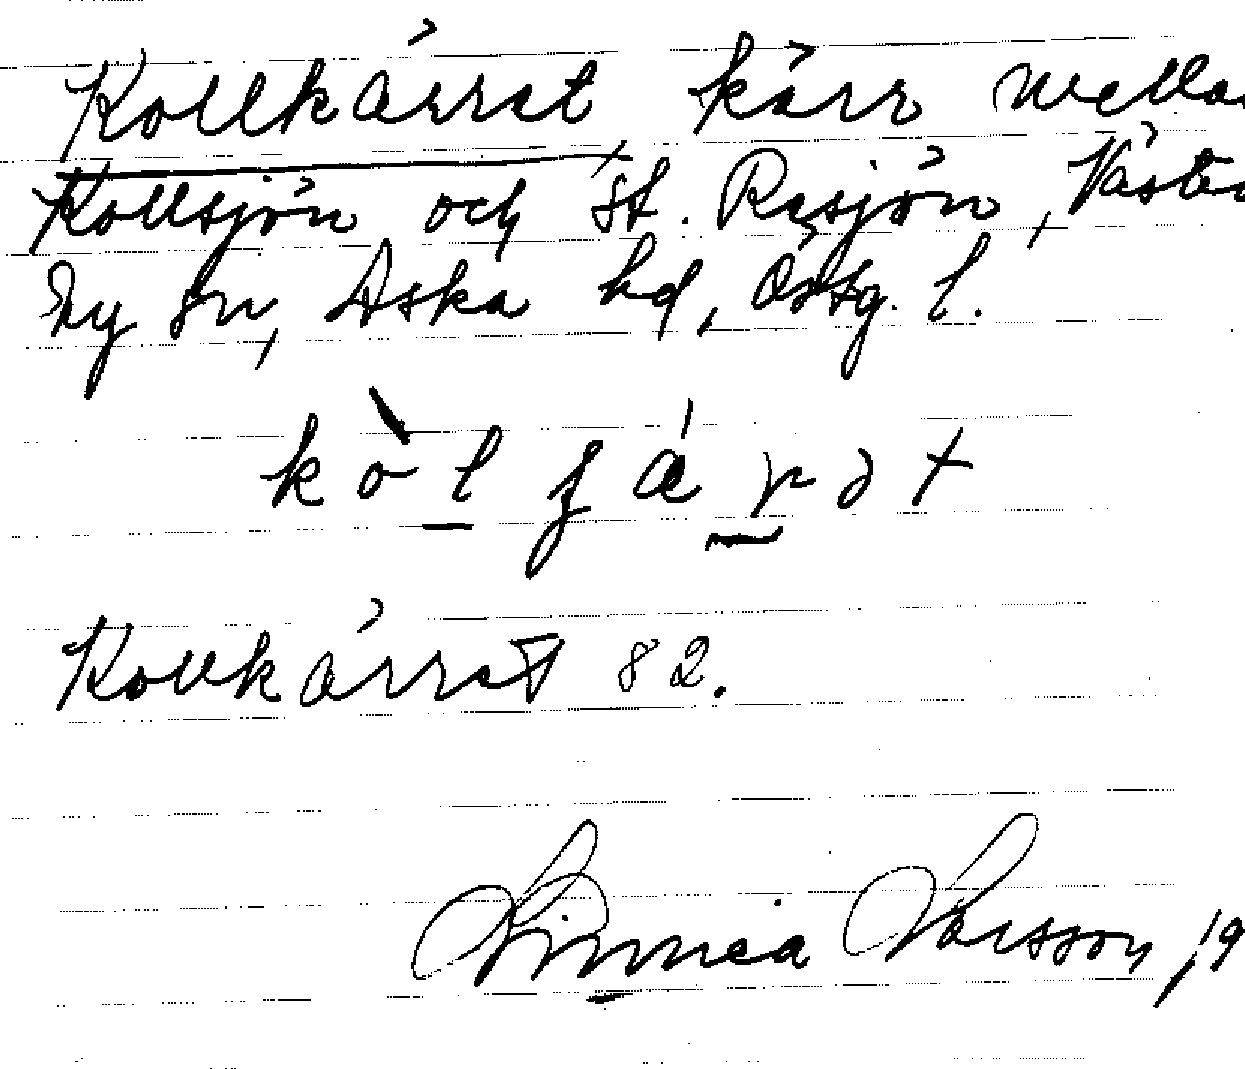 Kollkärret, kärr mella
Kollsjön och St. Resjön, Väster
Ny sn, Aska hd, Östg. l.
kòlfǽrət
Kollkärret 82.
Linnea Larsson, 19